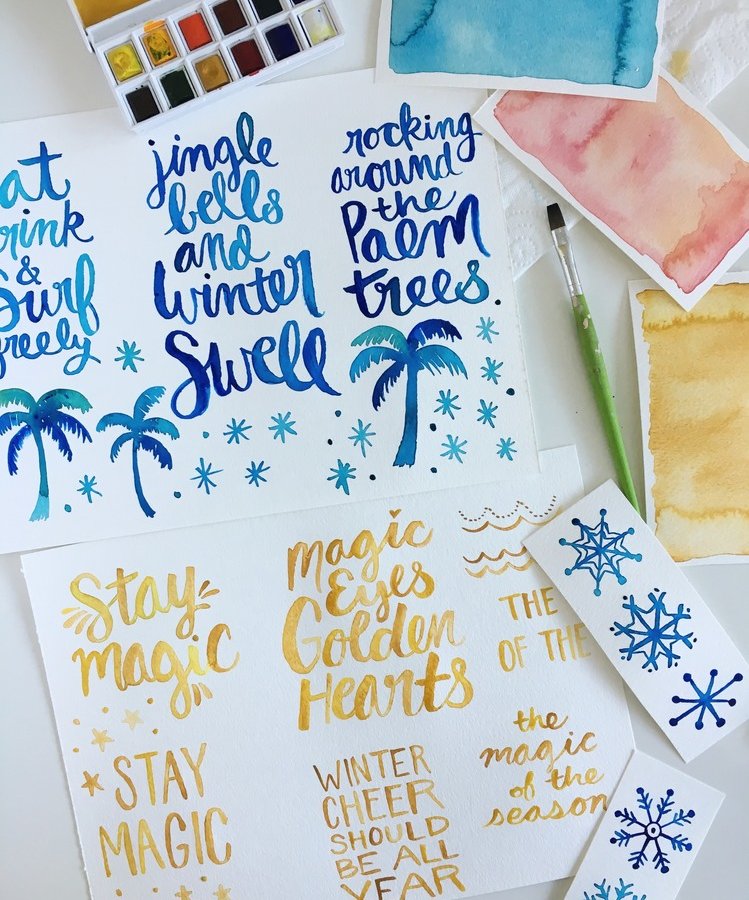 at
rink
&
Surf
freely
jingle
bells
and
winter
Swell
rocking
around
the
Palm
trees.
Stay
magic
Magic
Eyes
Golden
Hearts
THE
OF THE
STAY
MAGIC
WINTER
CHEER
SHOULD
BE ALL
YEAR
the
magic
of the
season